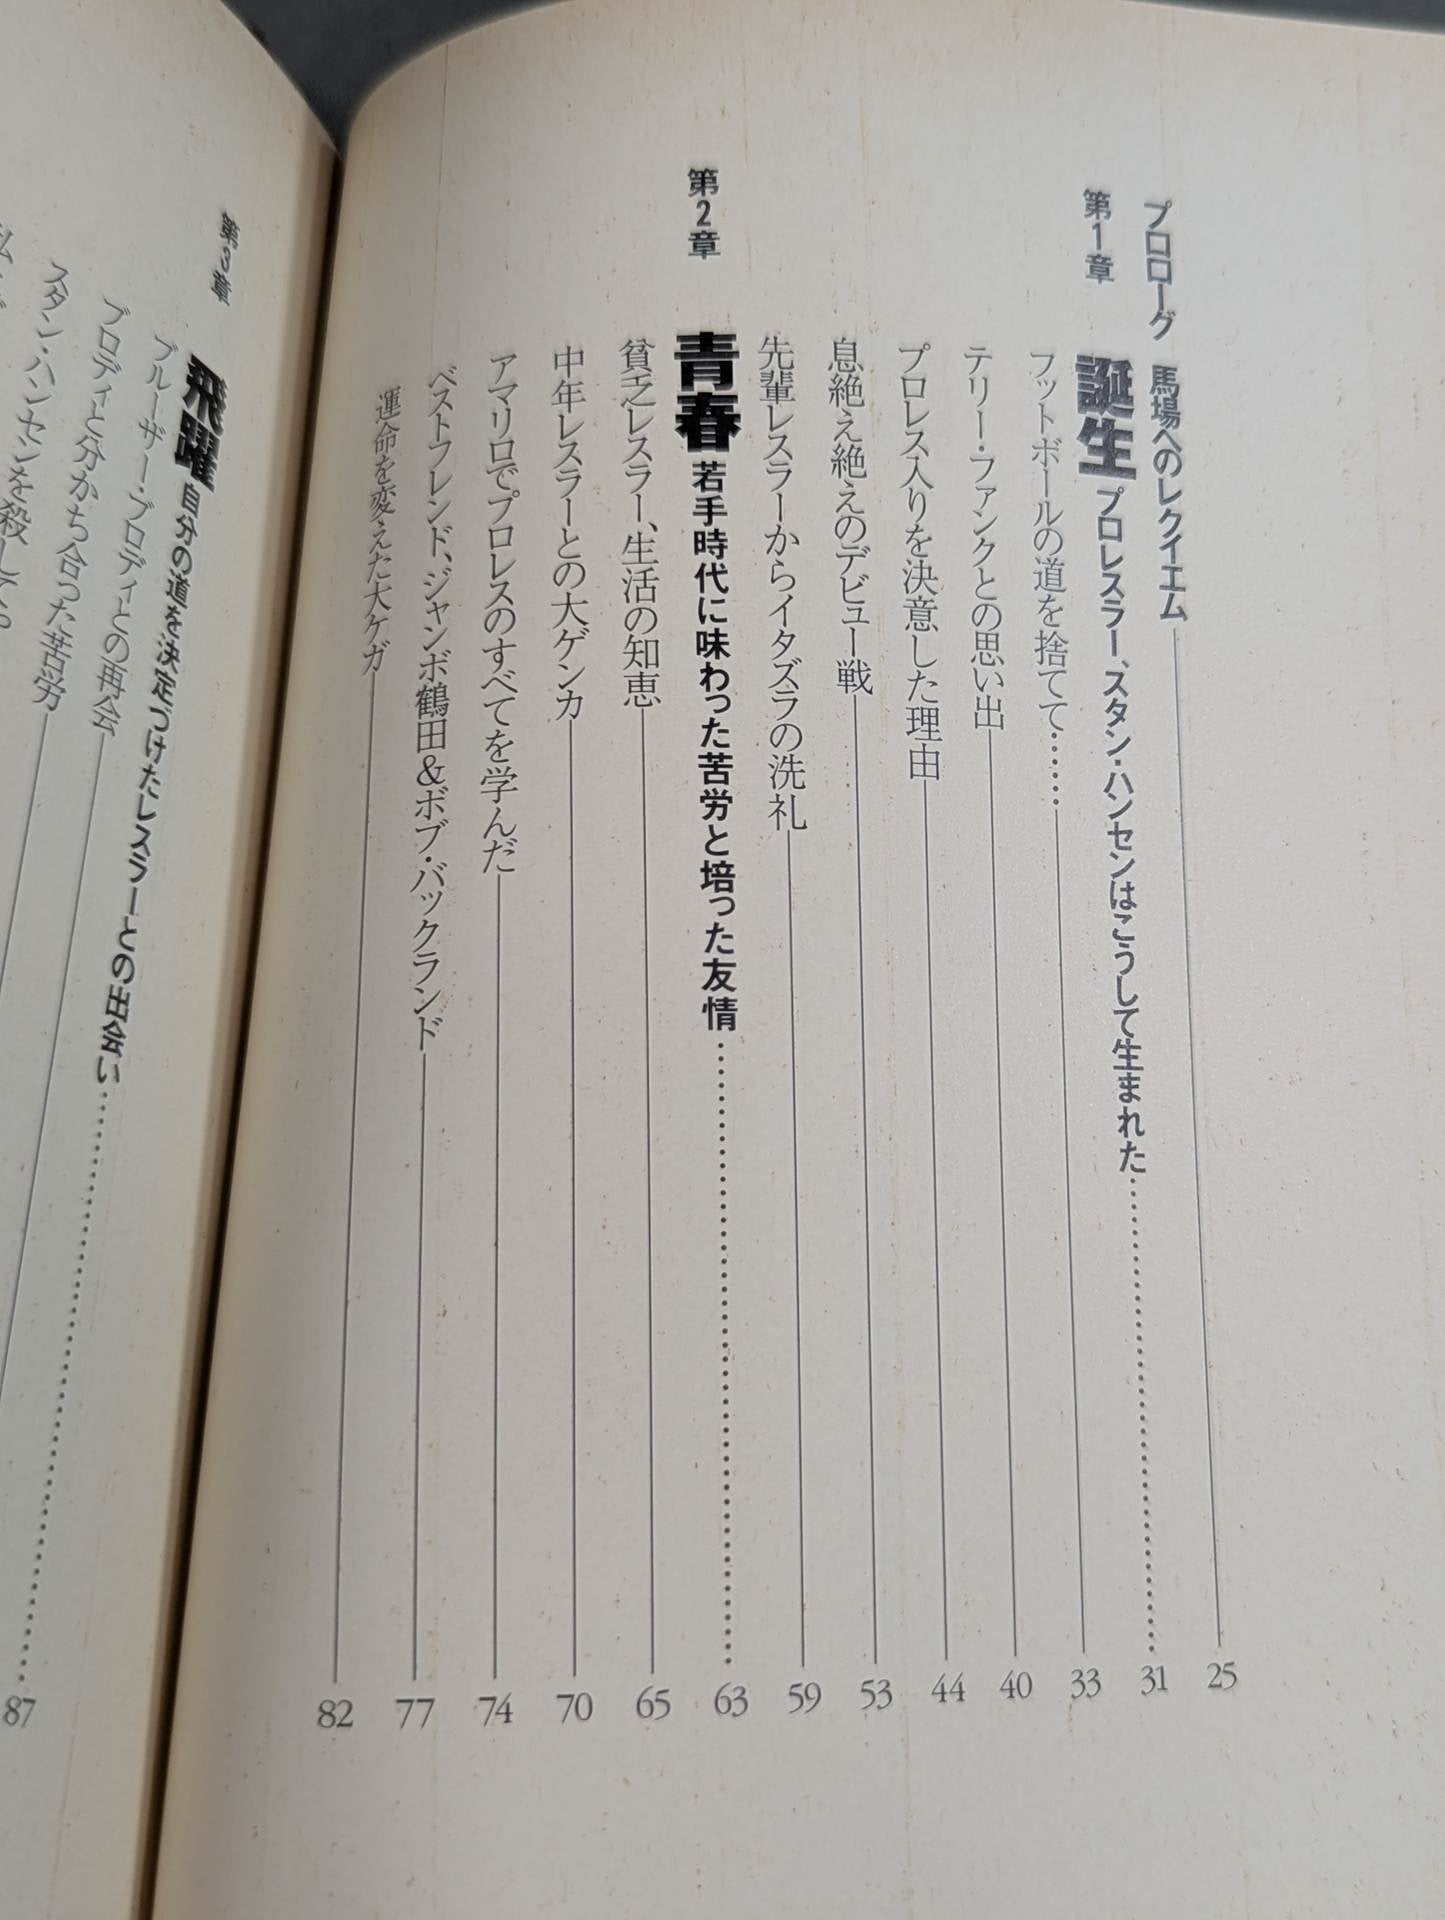 プロローグ 馬場へのレクイエム 25
第1章 誕生 プロレスラー、スタン・ハンセンはこうして生まれた 31
フットボールの道を捨てて…… 33
テリー・ファンクとの思い出 40
プロレス入りを決意した理由 44
息絶え絶えのデビュー戦 53
先輩レスラーからイタズラの洗礼 59
第2章 青春 若手時代に味わった苦労と培った友情 63
貧乏レスラー、生活の知恵 65
中年レスラーとの大ゲンカ 70
アマリロでプロレスのすべてを学んだ 74
ベストフレンド、ジャンボ鶴田&ボブ・バックランド 77
運命を変えた大ケガ 82
第3章 飛躍 自分の道を決定づけたレスラーとの出会い 87
ブルーザー・ブロディとの再会
ブロディと分かち合った苦労
スタン・ハンセンを殺して